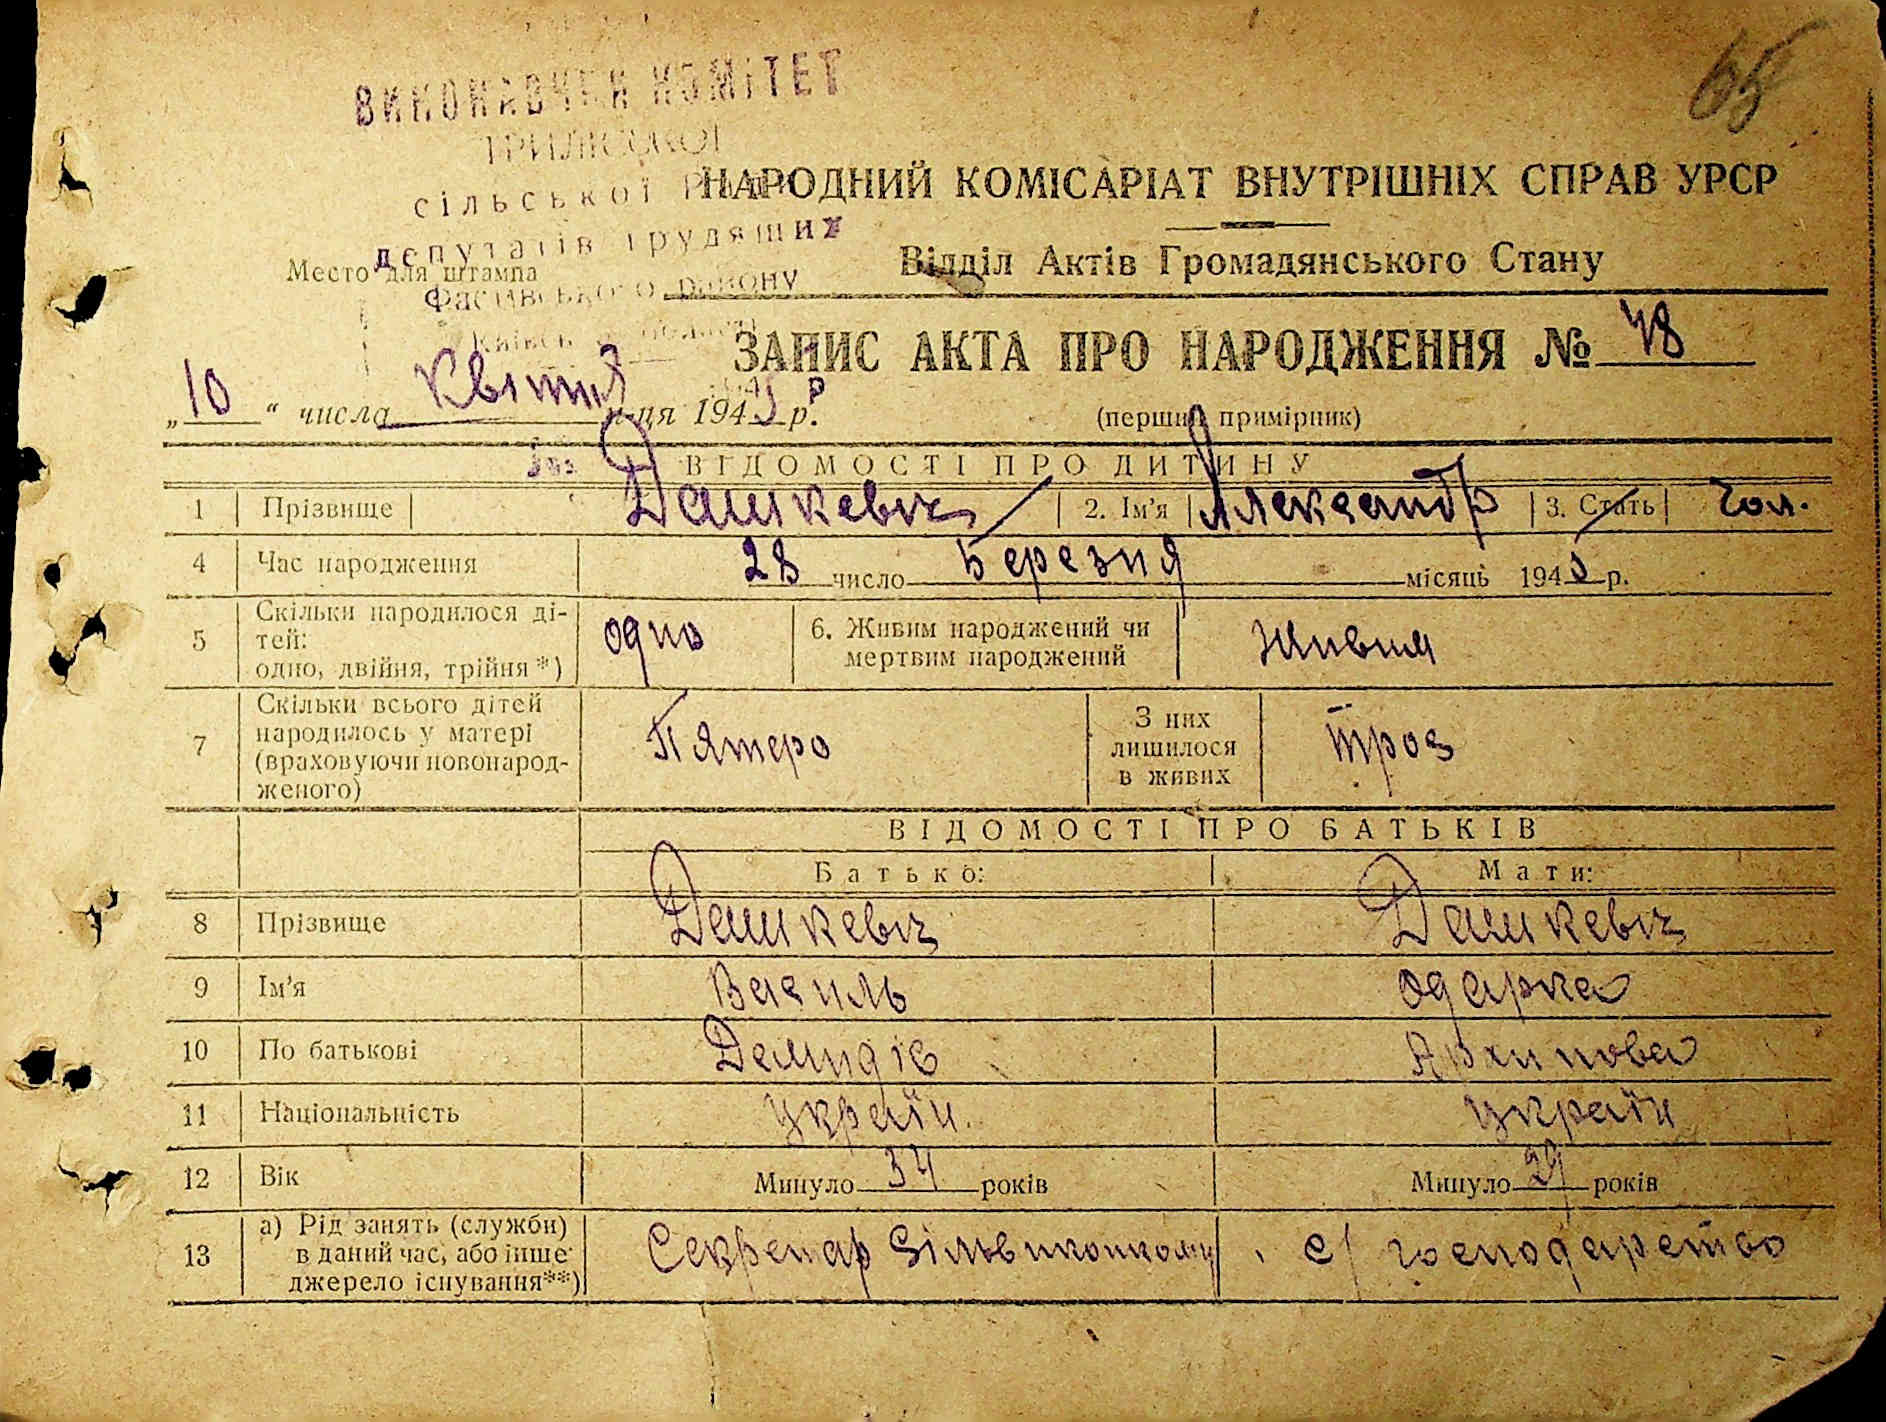 65
ВИКОНАВЧИЙ КОМІТЕТ
ТРИЛІСЬКОЇ
сільської Ради
депутатів трудящих
Фастівського району
Київської області
НАРОДНИЙ КОМІСАРІАТ ВНУТРІШНІХ СПРАВ УРСР
Відділ Актів Громадянського Стану
Место для штампа
ЗАПИС АКТА ПРО НАРОДЖЕННЯ № 48
„10“ числа Квітня м-ця 1945 р.
(перший примірник)
ВІДОМОСТІ ПРО ДИТИНУ
1 Прізвище Дашкевич 2. Ім'я Александр 3. Стать Чол.
4 Час народження 28 число Березня місяць 1945 р.
5 Скільки народилося ді-
тей:
одно, двійня, трійня*) одно 6. Живим народжений чи
мертвим народжений живим
7 Скільки всього дітей
народилось у матері
(враховуючи новонарод-
женого) Пятеро З них
лишилося
в живих троє
ВІДОМОСТІ ПРО БАТЬКІВ
Батько: Мати:
8 Прізвище Дашкевич Дашкевич
9 Ім'я Василь Одарка
10 По батькові Демидів Архипова
11 Національність Україн. Україн
12 Вік Минуло 34 років Минуло 29 років
13 а) Рід занять (служби)
в даний час, або інше
джерело існування**) Секретар Сільвиконкому с/господарство